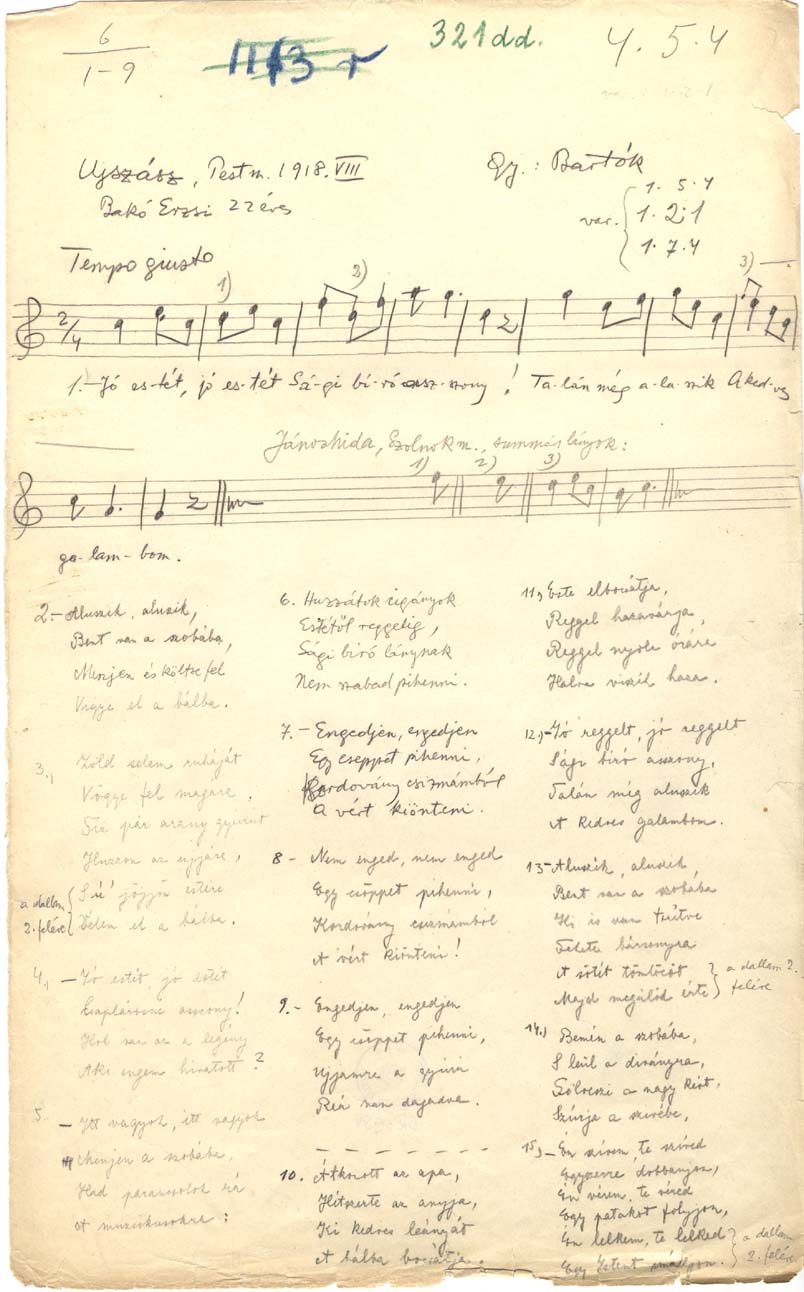 6
1-9
1113 r
321dd.
4.5.4
Ujszász, Pestm. 1918. VIII
Bakó Erzsi 22 éves
Gy.: Bartók
var. 1. 5. 4
1. 2. 1
1. 7. 4
Tempo giusto
1) 2) 3)
2/4
1.- Jó es-tét, jó es-tét Sá-gi bí-ró asz-szony! Ta-lán még a-la-szik A ked-ves
Jánoshida, Szolnok m., summás lányok:
1) 2) 3)
ga-lam-bom.
2.- Aluszik, aluszik,
Bent van a szobába,
Menjen és költse fel
Vigye el a bálba.
3.) Zöld selem ruháját
Vögye fel magára.
Tiz pár arany gyürüt
Huzzon az ujjára,
S jöjjön estére
Velem el a bálba.
a dallam 2. felére
4.) - Jó estét, jó estét
asszony!
Hol van az a legény
Aki engem hivatott?
5 - Itt vagyok, itt vagyok
Menjen a szobába.
Had parancsolok rá
A muzsikusokra:
6. Huzzátok cigányok
Estétől reggelig,
Sági biró lánynak
Nem szabad pihenni.
7. - Engedjen, engedjen
Egy cseppet pihenni,
Kordovány csizmámból
A vért kiönteni.
8 - Nem enged, nem enged
Egy csöppet pihenni,
Kordovány csizmámbol
A vért kiönteni!
9. - Engedjen, engedjen
Egy csöppet pihenni,
Ujjamra a gyürü
Reá van dagadva.
10. Átkozott az apa,
Hétszerte az anyja,
Ki kedves leányát
A bálba bocsátja.
11) Este elbocsátja,
Reggel hazavárja,
Reggel nyolc órára
Halva viszik haza.
12.) - Jó reggelt, jó reggelt
Sági biró asszony,
Talán még aluszik
A kedves galambom.
13 - Aluszik, aluszik,
Bent van a szobába
Ki is van terítve
Fekete bársonyra
A sötét tömlöcöt
Majd megülöd érte
a dallam 2. felére
14.) Bemén a szobába,
S leül a diványra,
a nagy kést,
Szúrja a szivébe,
15) - Én szivem, te szíved
Egyszerre dobbanjon,
Én vérem, te véred
Egy patakot folyjon,
Én lelkem, te lelked
Egy Istent imádjon.
a dallam 2. felére